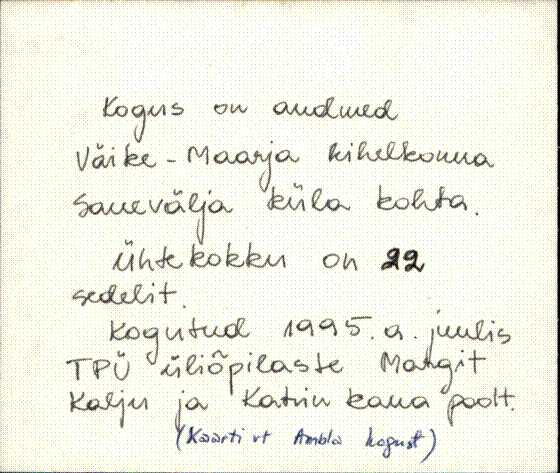 Kogus on andmed
Väike-Maarja kihelkonna
Sauevälja küla kohta.
Ühtekokku on 22
sedelit.
Kogutud 1995. a. juulis
TPÜ üliõpilaste Margit
Kalju ja Katrin Kana poolt.
(Kaarti vt Ambla kogust)